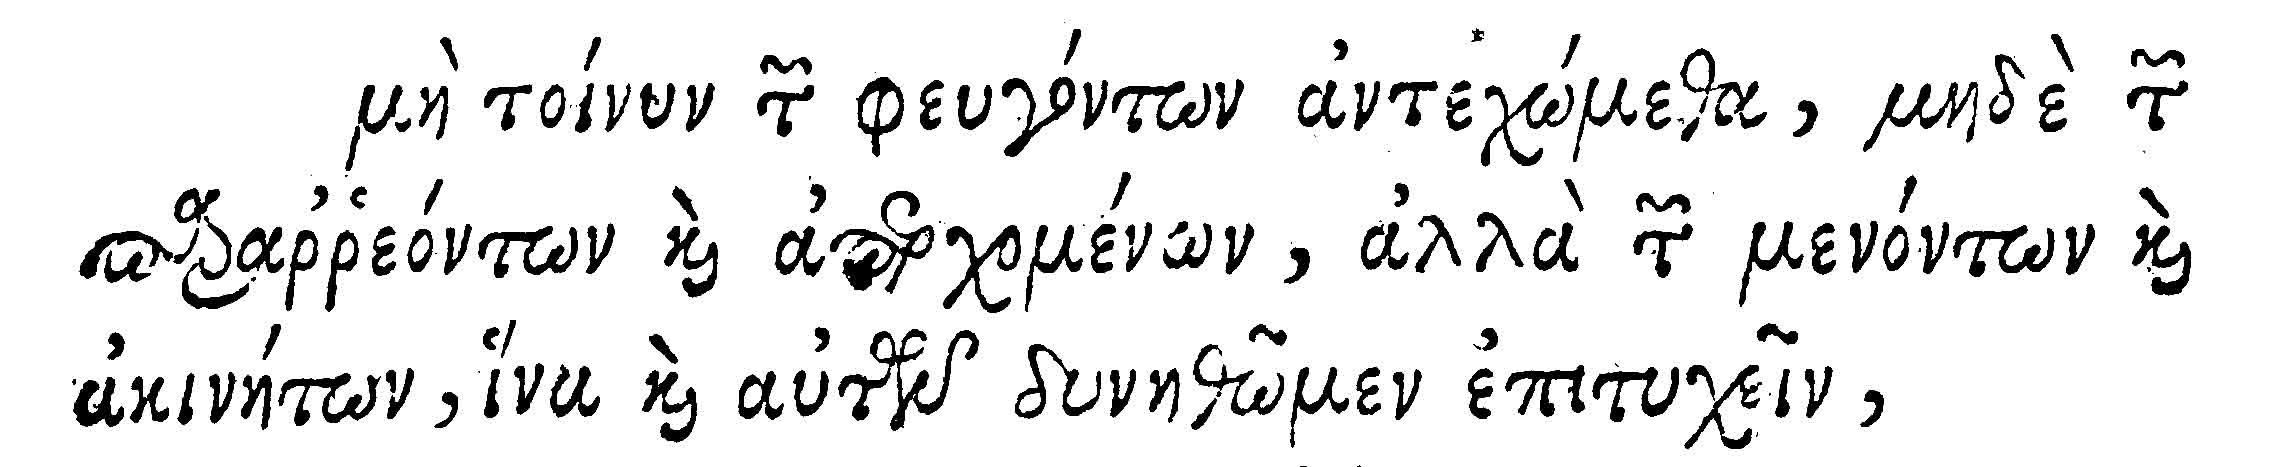 μὴ τοίνυν τῶν φευγόντων ἀντεχώμεθα, μηδὲ τῶν
παραῤῥεόντων καὶ ἀπερχομένων, ἀλλὰ τῶν μενόντων καὶ
ἀκινήτων, ἵνα καὶ αὐτῶν δυνηθῶμεν ἐπιτυχεῖν,